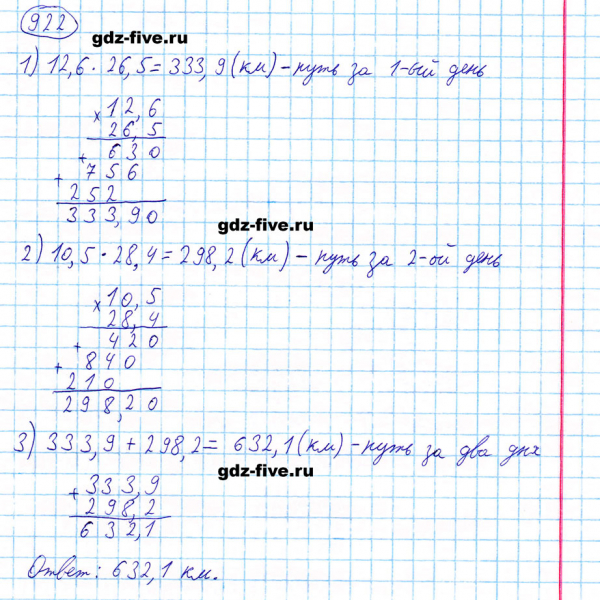 922
gdz-five.ru
1) 12,6 · 26,5 = 333,9 (км) – путь за 1-ый день
× 12,6
26,5
+ 630
+ 756
252
333,90
gdz-five.ru
2) 10,5 · 28,4 = 298,2 (км) – путь за 2-ой день
× 10,5
28,4
+ 420
+ 840
210
298,20
3) 333,9 + 298,2 = 632,1 (км) – путь за два дня
gdz-five.ru
+ 333,9
298,2
632,1
Ответ: 632,1 км.